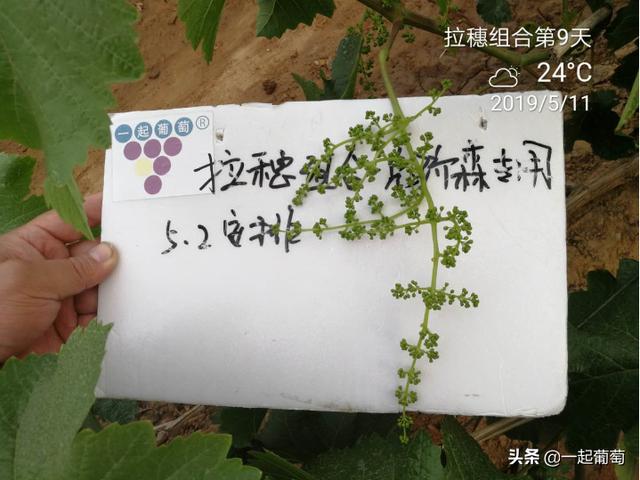 拉穗组合第9天
24°C
2019/5/11
一起葡萄®
拉穗组合 森专用
5.2安排
头条@一起葡萄